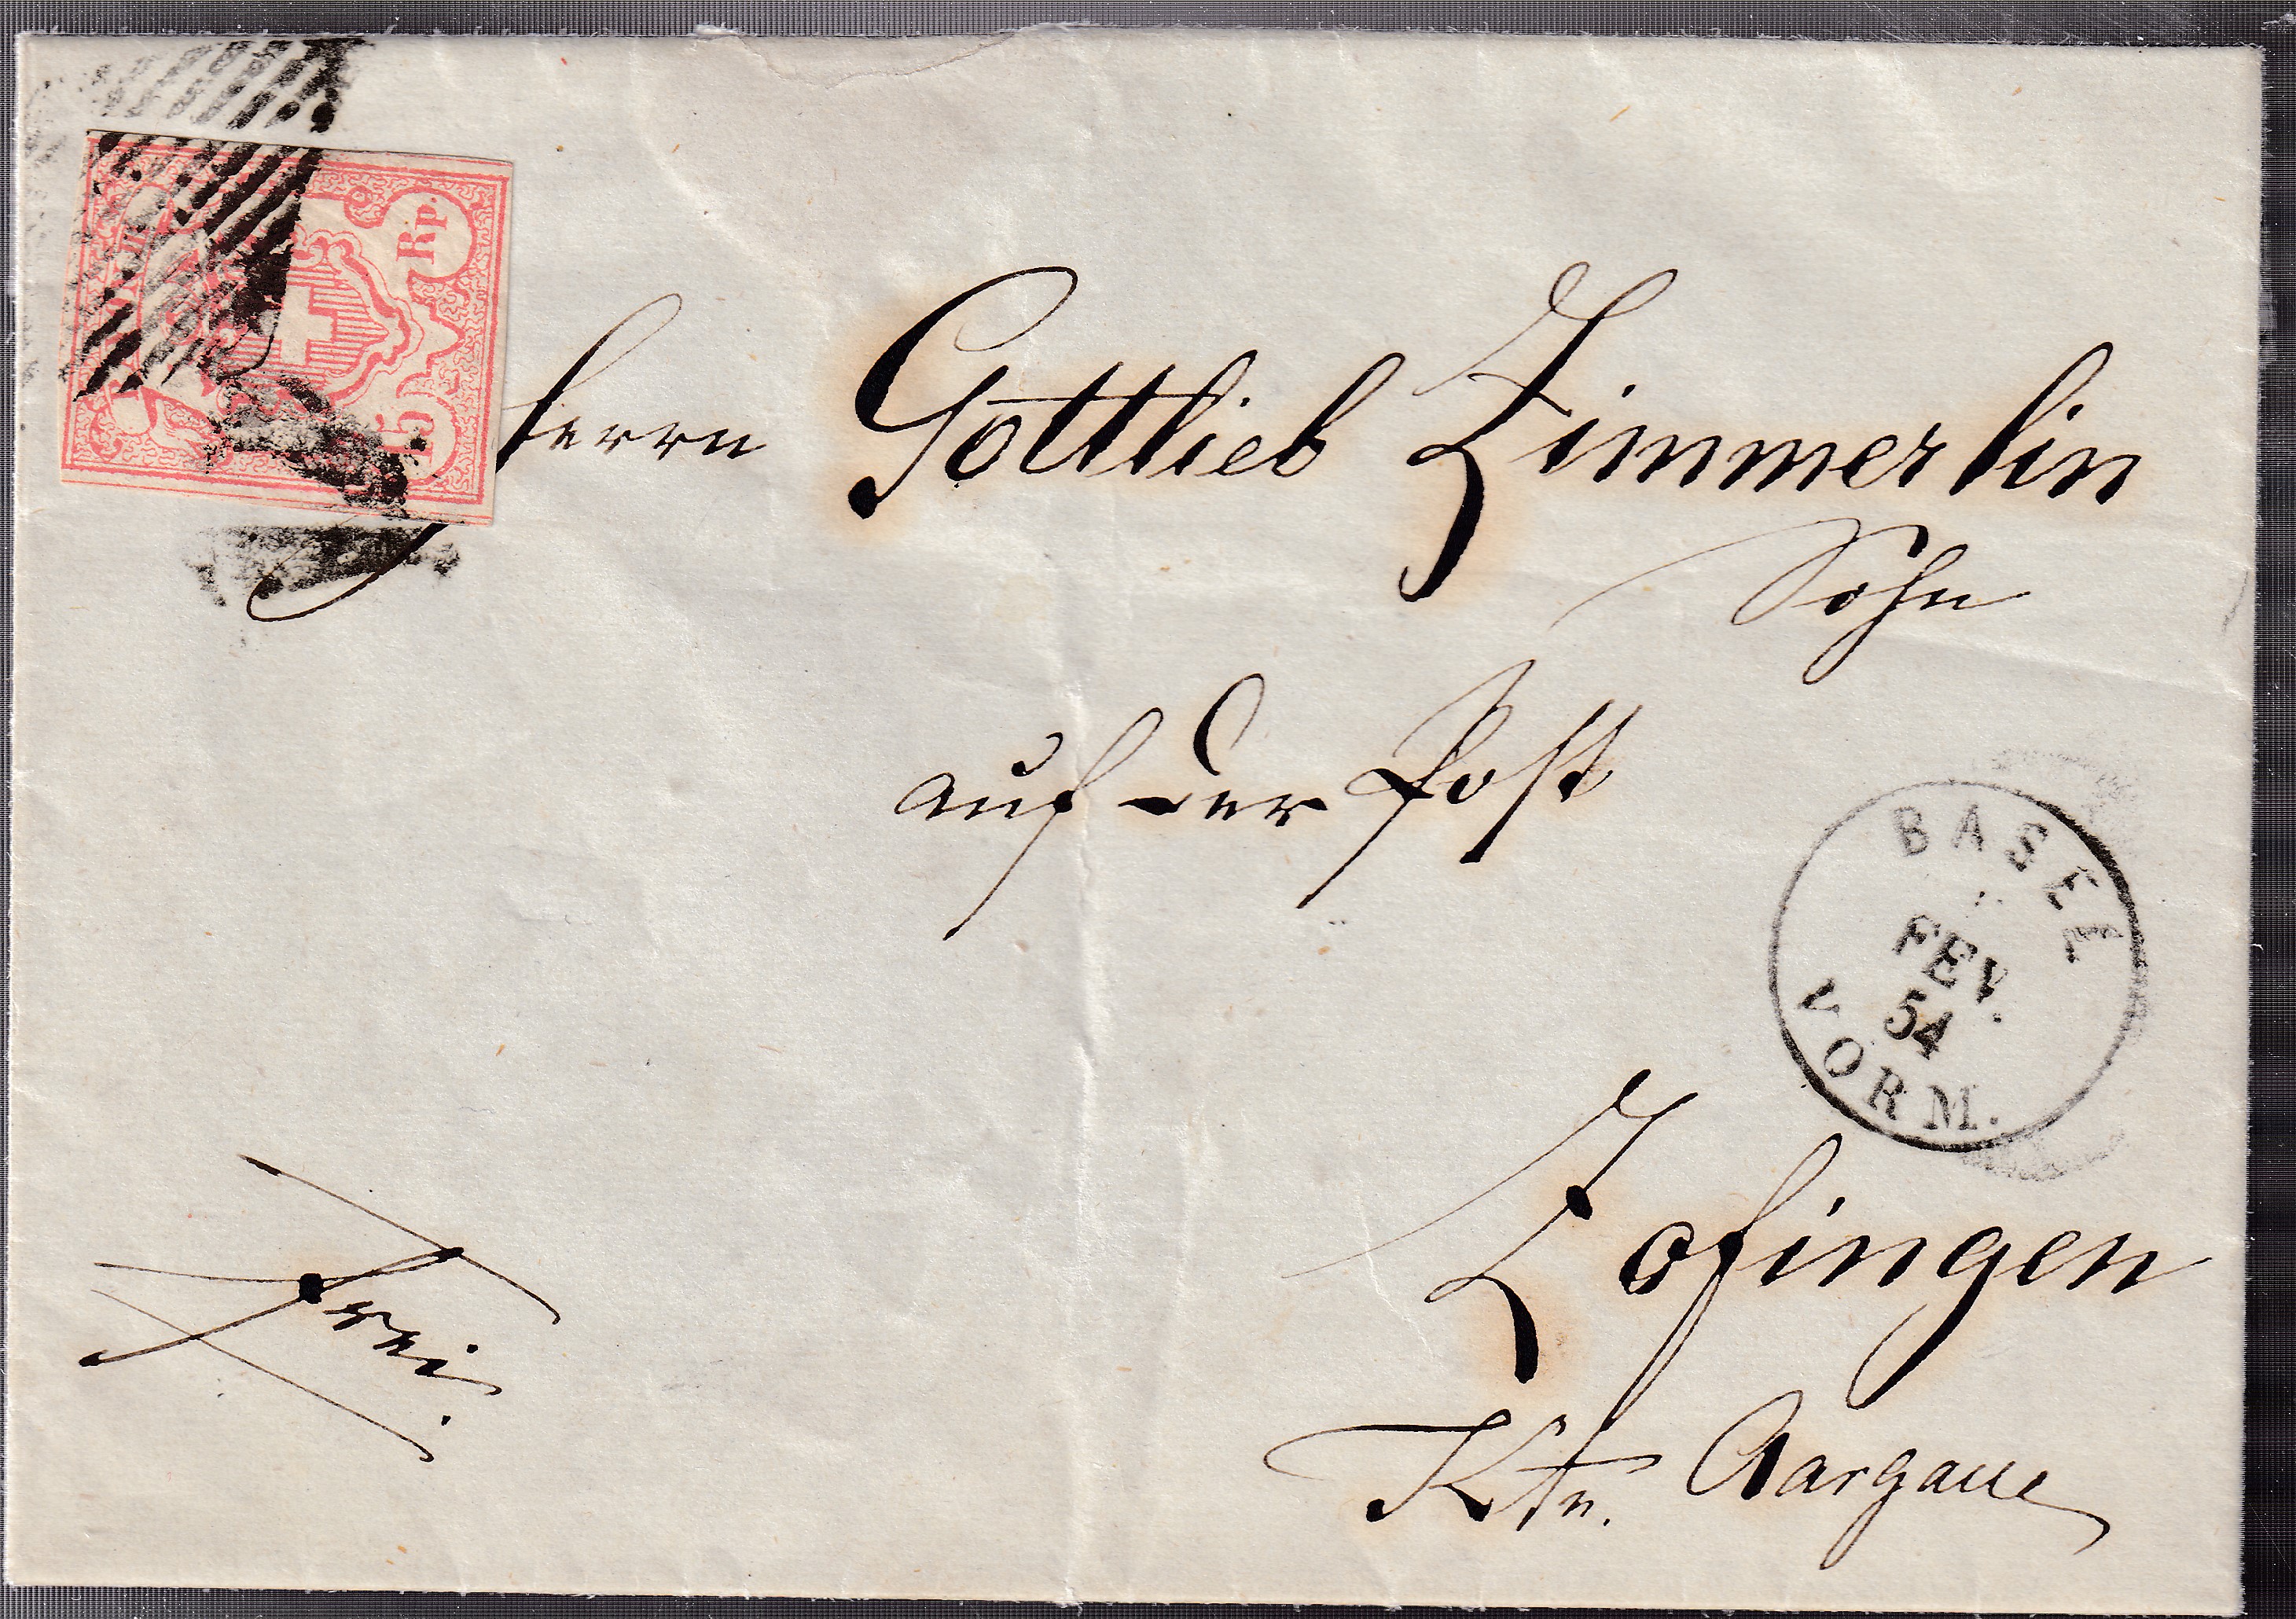 Rp.
15
Herrn Gottlieb Zimmerlin
Sohn
auf der Post
BASEL
FEV.
54
VORM.
Zofingen
Ktn. Aargau
frei.